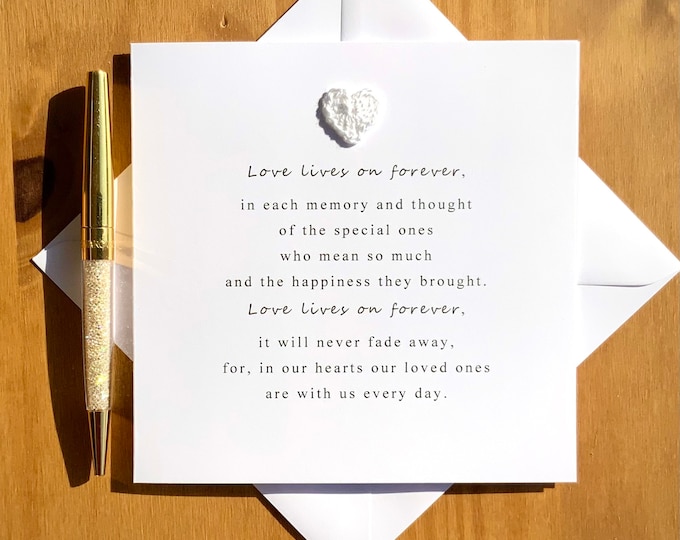 Love lives on forever,
in each memory and thought
of the special ones
who mean so much
and the happiness they brought.
Love lives on forever,
it will never fade away,
for, in our hearts our loved ones
are with us every day.